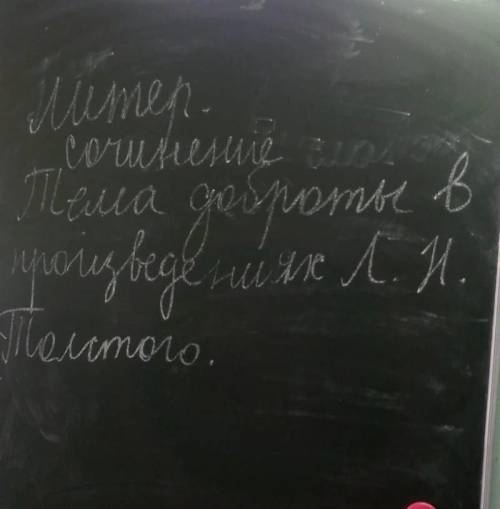 Литер.
сочинение
Тема доброты в
произведениях Л. Н.
Толстого.